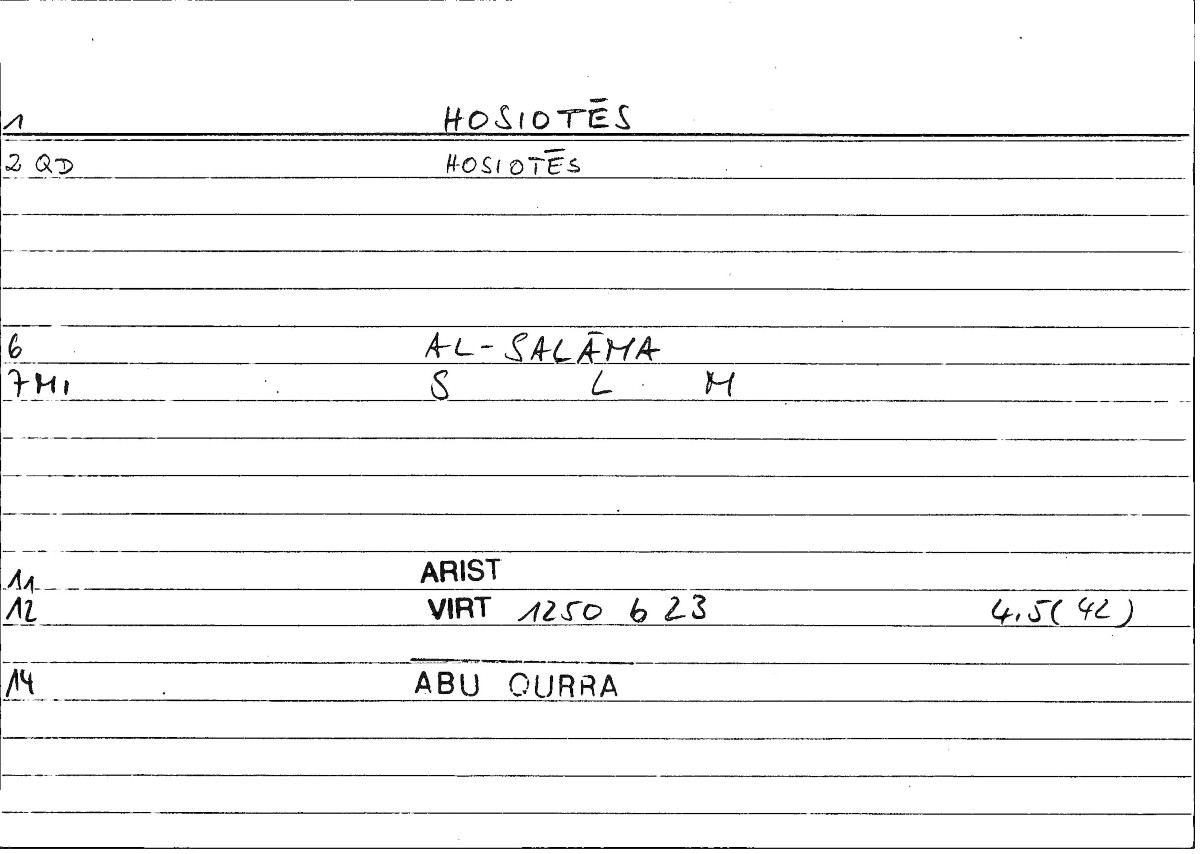 1 HOSIOTĒS
2 QD HOSIOTĒS
6 AL-SALĀMA
7 MI S L M
11 ARIST
12 VIRT 1250 b 23 4.5(42)
14 ABU QURRA